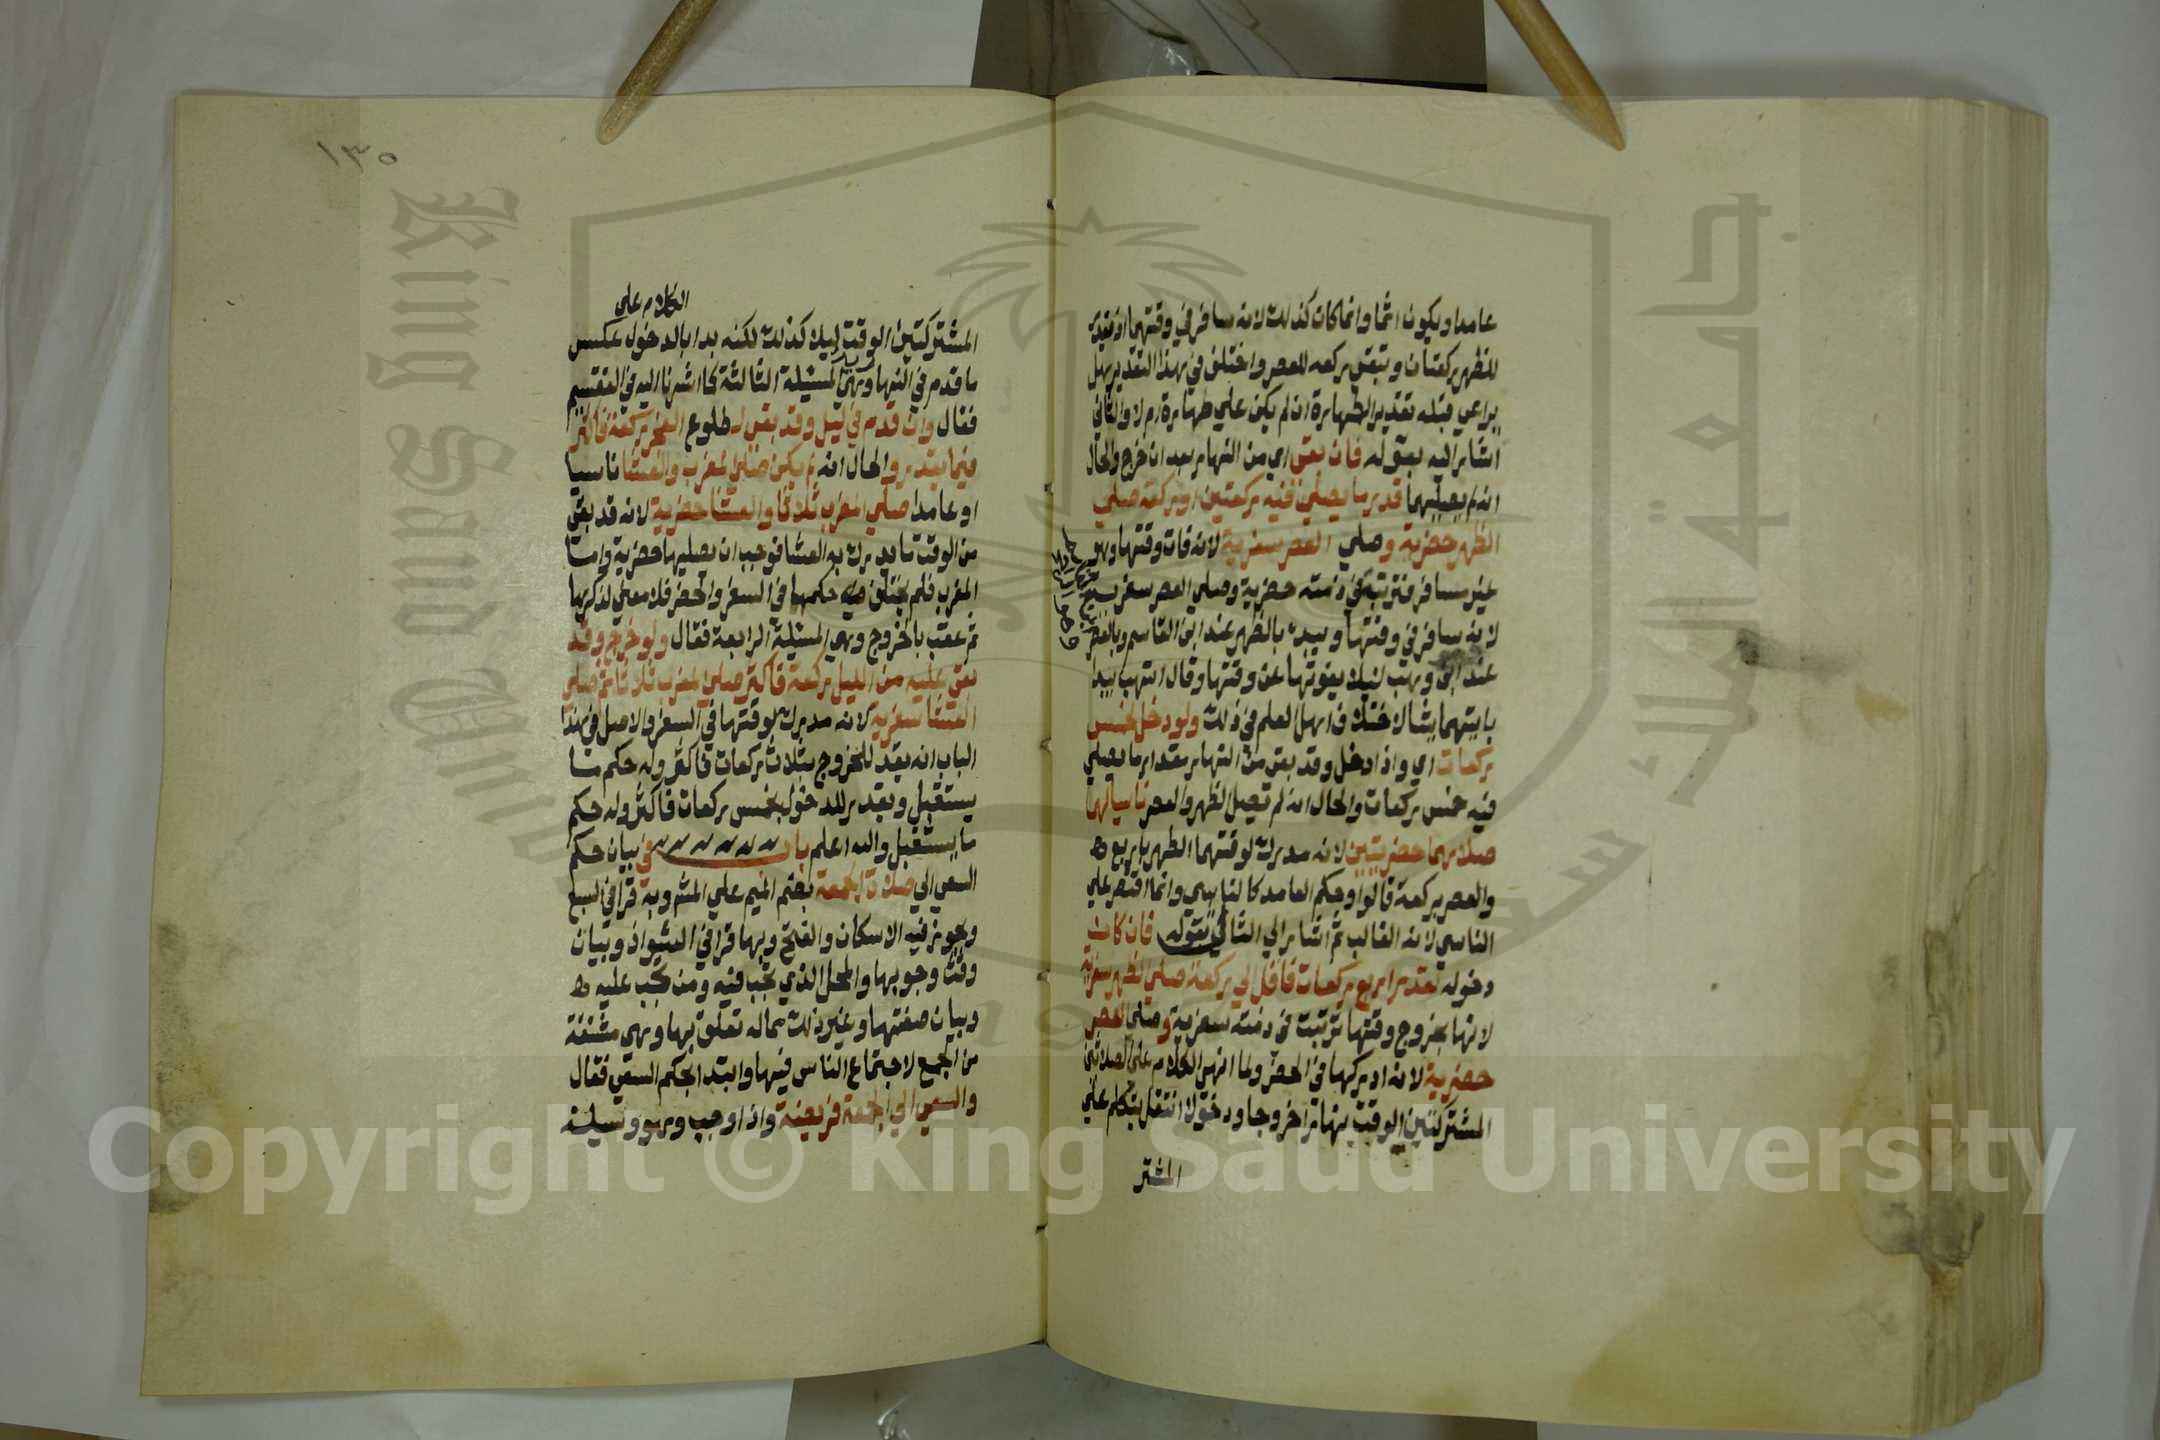 عامدا ويكون اثما وانما كان كذلك لانه سافر في وقتهما اذ يقدر
للظهر ركعتان وتبقى ركعة للعصر واختلف في هذا التقدير هل
يراعى قبله تقدير الطهارة ان لم يكن على طهارة ام لا والثاني
اشار اليه بقوله فان بقى اي من النهار بعد ان خرج والحال
انه لم يصليهما قدر ما يصلى فيه ركعتين او ركعة صلى
الظهر حضرية وصلى العصر سفرية لانه فات وقتها وهو
غير مسافر فترتبت في ذمته حضرية وصلى العصر سفرية
لانه سافر في وقتها ويبدا بالظهر عند ابن القاسم وبالعصر
عند ابن وهب ليلا يفوتها عن وقتها وقال اشهب يبدا
بايتهما يشا لاختلاف اهل العلم في ذلك ولو دخل لخمس
ركعات اي واذا دخل وقد بقى من النهار مقدار ما يصلى
فيه خمس ركعات والحال انه لم يصل الظهر والعصر ناسيا لهما
صلاهما حضريتين لانه مدرك لوقتهما الظهر باربع
والعصر بركعة قالوا وحكم العامد كالناسي وانما اقتصر على
الناسي لانه الغالب ثم اشار الى الثاني بقوله فان كانت
دخوله لقدر اربع ركعات فاقل الى ركعة صلى الظهر سفرية
لانها بخروج وقتها ترتبت في ذمته سفرية وصلى العصر
حضرية لانه ادركها في الحضر ولما انهى الكلام على الصلاتين
المشتركتين الوقت نهارا خروجا ودخولا انتقل يتكلم على
المشتر
١٣٥
الكلام على
المشتركتين الوقت ليلا كذلك لكنه بدا بالدخول عكس
ما قدم في النهار وهي المسئلة الثالثة كما اشرنا اليه في التقسيم
فقال وان قدم في ليل وقد بقى لطلوع الفجر ركعة فاكثر
فيما يقدر والحال انه لم يكن صلى المغرب والعشا ناسيا
او عامدا صلى المغرب ثلاثا والعشا حضرية لانه قد بقى
من الوقت ما يدرك به العشا فوجب ان يصليها حضرية واما
المغرب فلم يختلف حكمها في السفر والحضر فلا معنى لذكرها
ثم عقب بالخروج وهي المسئلة الرابعة فقال ولو خرج وقد
بقى عليه من الليل ركعة فاكثر صلى المغرب ثلاثا ثم صلى
العشا سفرية لانه مدرك لوقتها في السفر والاصل في هذا
الباب انه يقدر للخروج بثلاث ركعات فاكثر وله حكم ما
يستقبل ويقدر للدخول بخمس ركعات فاكثر وله حكم
ما يستقبل والله اعلم باب في بيان حكم
السعي الى صلاة الجمعة بضم الميم على المشهور وبه قرا في السبع
ويجوز فيه الاسكان والفتح وبهما قرا في الشواذ وبيان
وقت وجوبها والمحل الذي تجب فيه ومن تجب عليه
وبيان صفتها وغير ذلك مما له تعلق بها وهي مشتقة
من الجمع لاجتماع الناس فيها وابتدا بحكم السعي فقال
والسعي الى الجمعة فريضة واذا وجب وهو وسيلة
Copyright © King Saud University
King Saud University
جامعة الملك سعود